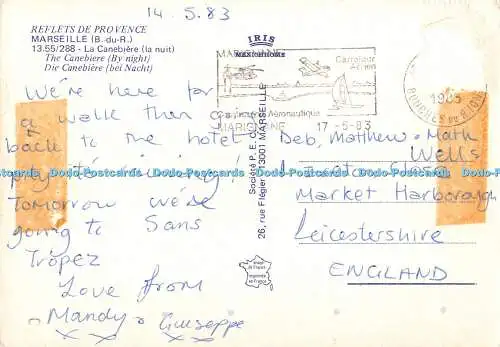 14.5.83
REFLETS DE PROVENCE
MARSEILLE (B.-du-R.)
13.55/288 - La Canebière (la nuit)
The Canebiere (By night)
Die Canebière (bei Nacht)
IRIS
MARIGNANE
Carrefour
Aérien
Aéronautique
MARIGNANE 17-5-83
1983
BOUCHES DU RHONE
We're here for
a walk then
back to the hotel
Tomorrow we're
going to Sans
Tropez
Love from
Mandy & Giuseppe
x x
Société P.E.C.
26, rue Flégier 13001 MARSEILLE
image de France
imprimée en France
Deb, Matthew & Math
Wells
Market Harborough
Leicestershire
ENGLAND
Dodo-Postcards Dodo-Postcards Dodo-Postcards Dodo-Postcards